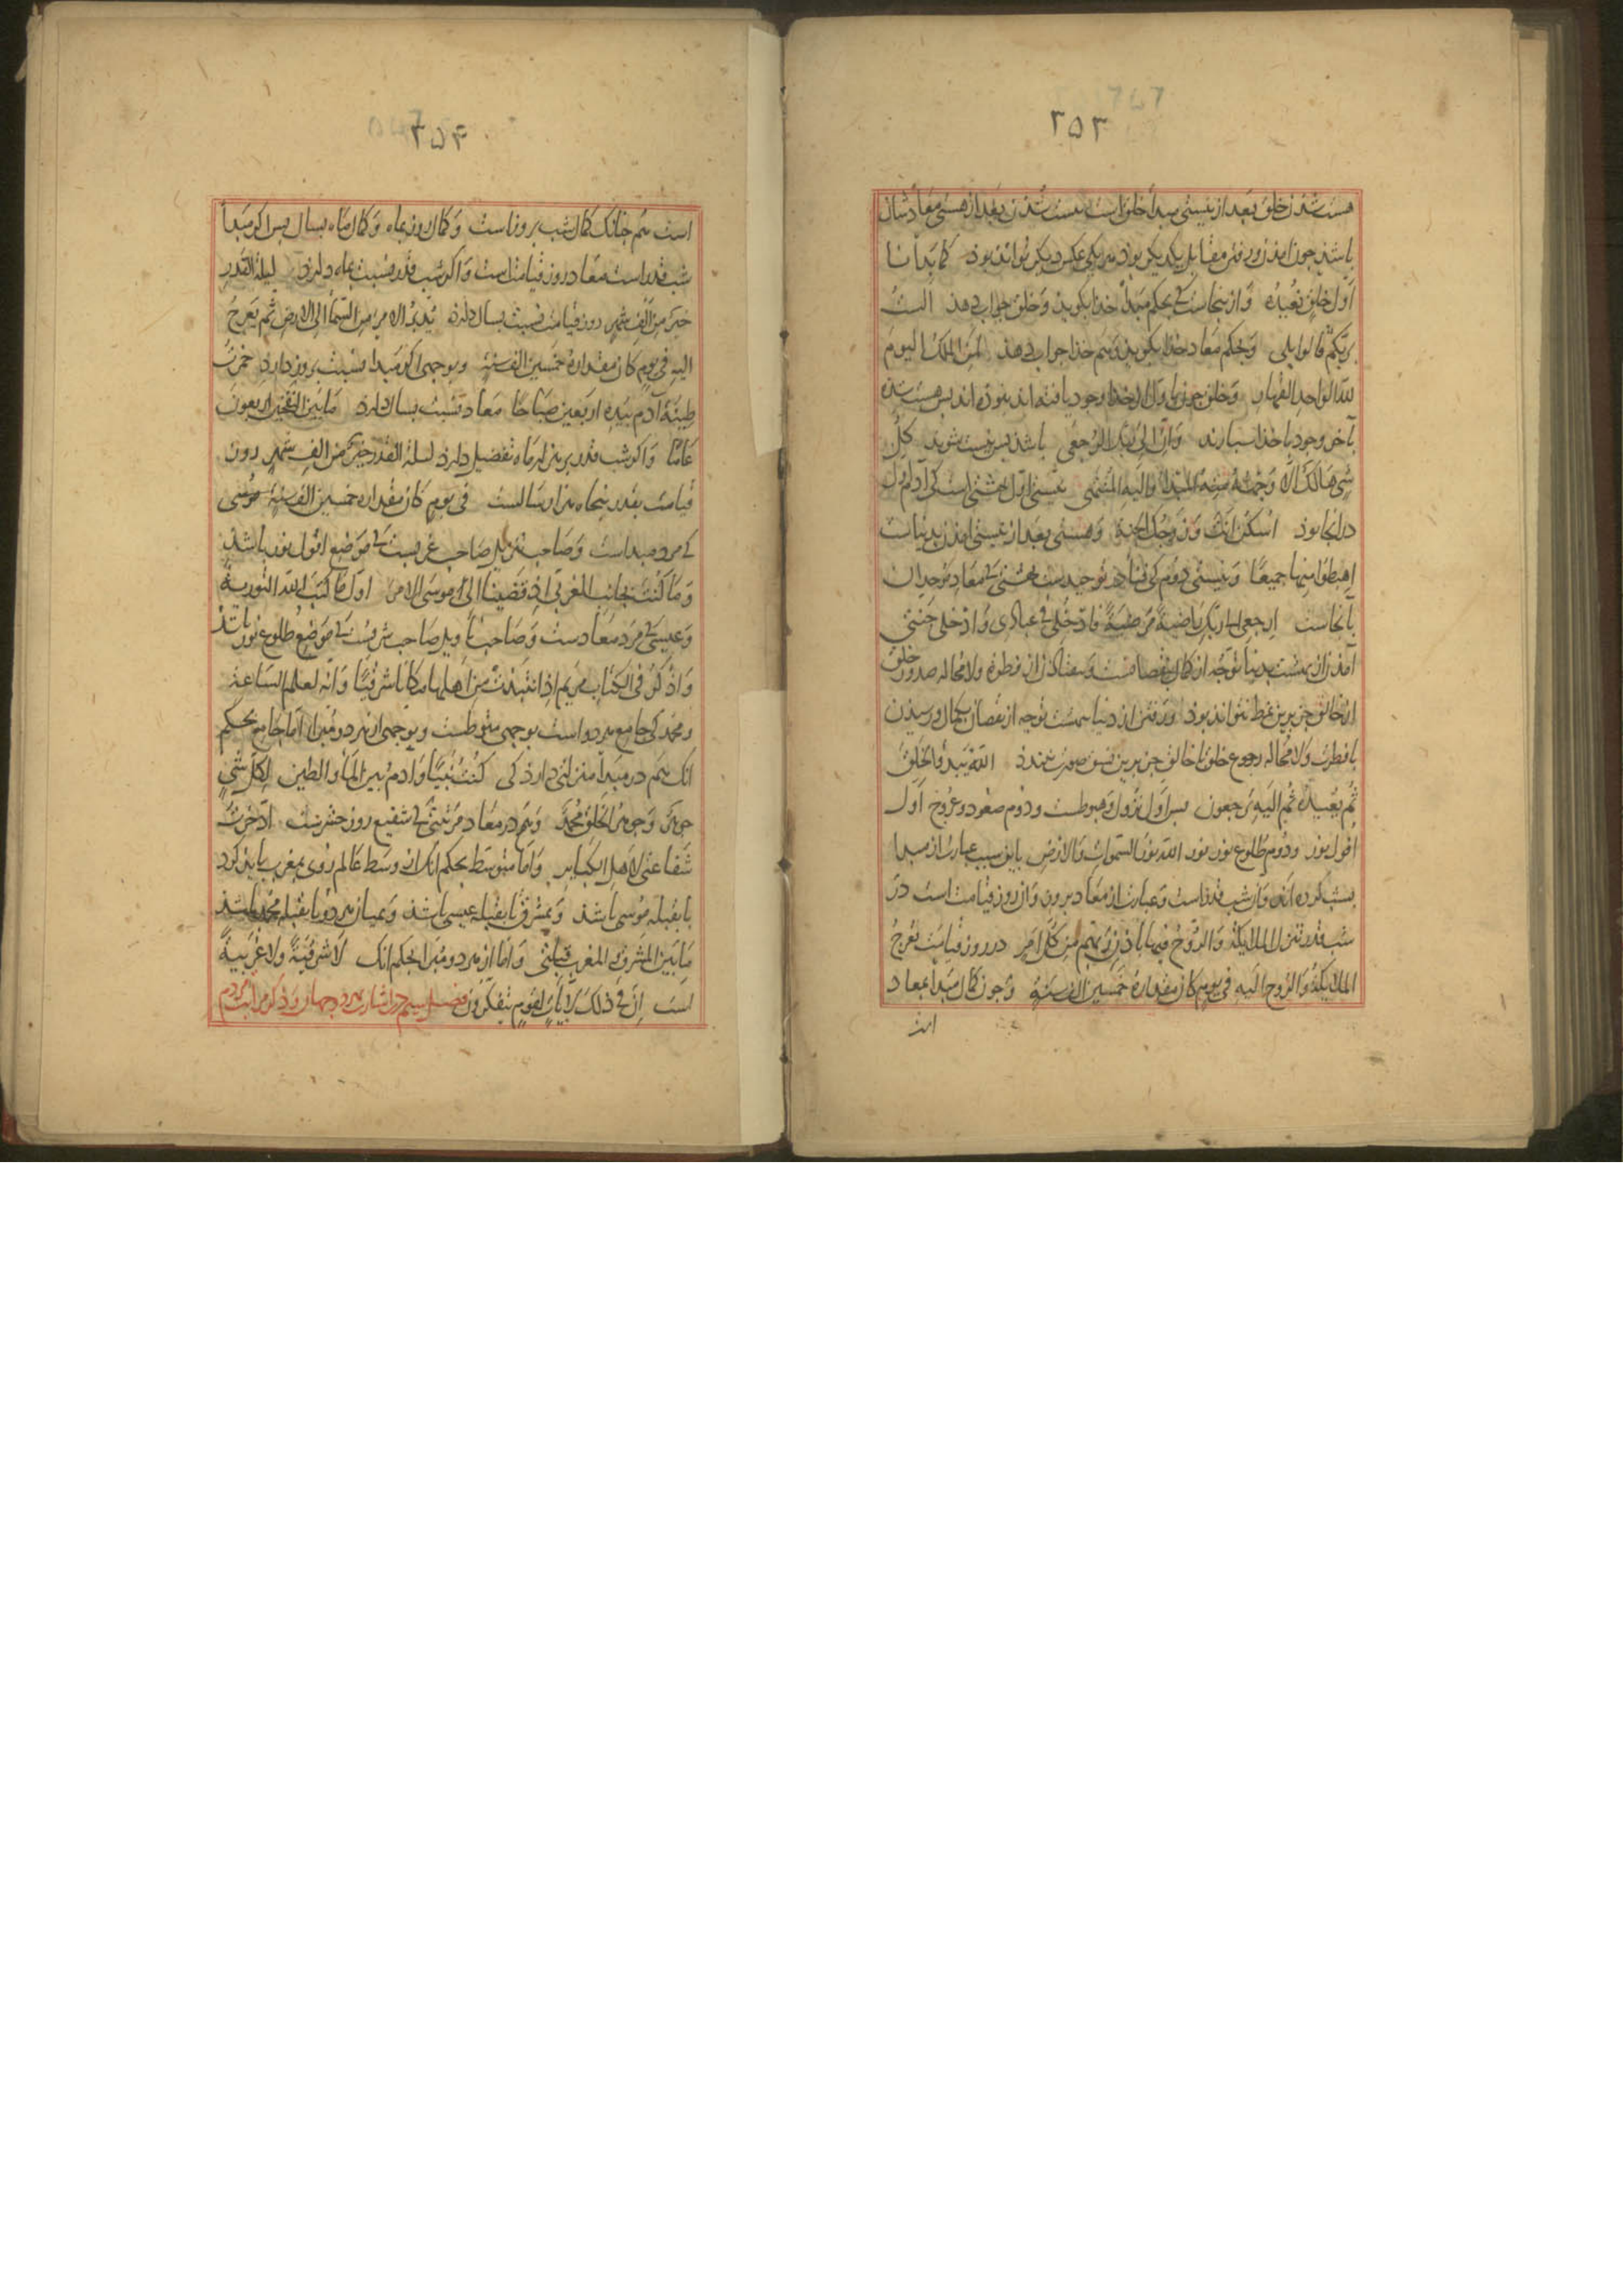 ۲۵۳
هست شدن خلق بعد از نیستی مبدأ خلق است نیست شدن بعد از هستی معادشان
باشد چون امدن ورفتن مقابل یکدیکر بوذ هر یکی عکس دیکر تواند بوذ کما بدأنا
اول خلق نعیده و از ینجاست کی بحکم مبدأ خذا بکوید و خلق جواب دهذ الست
بربکم قالوا بلی و بحکم معاد خذا بکوید و هم خذا جواب دهذ لمن الملک الیوم
لله الواحد القهار و خلق چون باول از خذا وجود یافته اند نبوده اند پس هست شده
بآخر وجود با خذا سپارند و ان الی ربک الرجعی باشد پس نیست شوند کل
شی هالک الا وجهه منه المبدا والیه المنتهی نیستی اول بهشتی است کی ادم
درانجا بوذ اسکن انت وزوجک الجنة و هستی بعد از نیستی امدن بدنیاست
اهبطوا منها جمیعا و نیستی دوم کی فنا در توحیدست بهشتی کی معاد موحدان
بآنجاست ارجعی الی ربک راضیة مرضیة فادخلی فی عبادی وادخلی جنتی
آمذن از بهشت بدنیا توجه از کمال بنقصانست و بیفتاذن از فطرة ولا محاله صدور خلق
از خالق جز برین نمط نتواند بوذ و رفتن از دنیا ببهشت توجه از نقصان بکمال و رسیدن
با فطرت ولا محاله رجوع خلق با خالق جز برین نسق صورت نبندد الله یبدؤا الخلق
ثم یعیده ثم الیه ترجعون پس اول نزول و هبوطست و دوم صعود و عروج اول
افول نور و دوم طلوع نور نور الله نور السموات والارض باین سبب عبارت از مبدا
بشب کرده اند و ان شب قدر است و عبارت از معاد بروز و ان روز قیامت است در
شب قدر تنزل الملائکة والروح فیها باذن ربهم من کل امر در روز قیامت تعرج
الملائکة والروح الیه فی یوم کان مقداره خمسین الف سنة و چون کمال مبدا بمعاد
است
۲۵۴
است همچنانک کمال شب بروز است و کمال روز بماه و کمال ماه بسال پس اکر مبدأ
شب قدر است معاد روز قیامتست و اکر شب قدر نسبت بماه دارد لیلة القدر
خیر من الف شهر روز قیامت نسبت بسال دارد یدبر الامر من السمآ الی الارض ثم یعرج
الیه فی یوم کان مقداره خمسین الف سنة و بوجهی اکر مبدا نسبت بروز دارد خمرت
طینة آدم بیده اربعین صباحا معاد نسبت بسال دارد ما بین النفختین اربعون
عاما و اکر شب قدر بر هزار ماه تفضیل دارد لیلة القدر خیر من الف شهر روز
قیامت بقدر پنجاه هزار سالست فی یوم کان مقداره خمسین الف سنة موسی
کی مرد مبداست و صاحب تنزیل صاحب غربیست کی موضع افول نور باشد
و ما کنت بجانب الغربی اذ قضینا الی موسی الامر اول ما کتب الله التوریة
و عیسی کی مرد معادست و صاحب تاویل صاحب شرقیست کی موضع طلوع نور باشد
واذکر فی الکتاب مریم اذ انتبذت من اهلها مکانا شرقیا وانه لعلم للساعة
و محمد کی جامع هر دو است بوجهی متوسطست و بوجهی از هر دو مبرا اما جامع بحکم
انک هم در مبدأ منزلتی دارد کی کنت نبیا وادم بین المآ والطین لکل شی
جوهر وجوهر الخلق محمد و هم در معاد مرتبتی کی شفیع روز حشرست ادخرت
شفاعتی لاهل الکبایر و اما متوسط بحکم انک از وسط عالم روی بمغرب باید کرد
تا بقبله موسی باشد و بمشرق تا بقبله عیسی باشد و میان هر دو تا بقبله محمد باشد
ما بین المشرق و المغرب قبلتی و اما از هر دو مبرا بحکم انک لا شرقیة ولا غربیة
است ان فی ذلک لآیات لقوم یتفکرون فصل سیم در اشارت بهر دو جهان و ذکر مراتب مردم